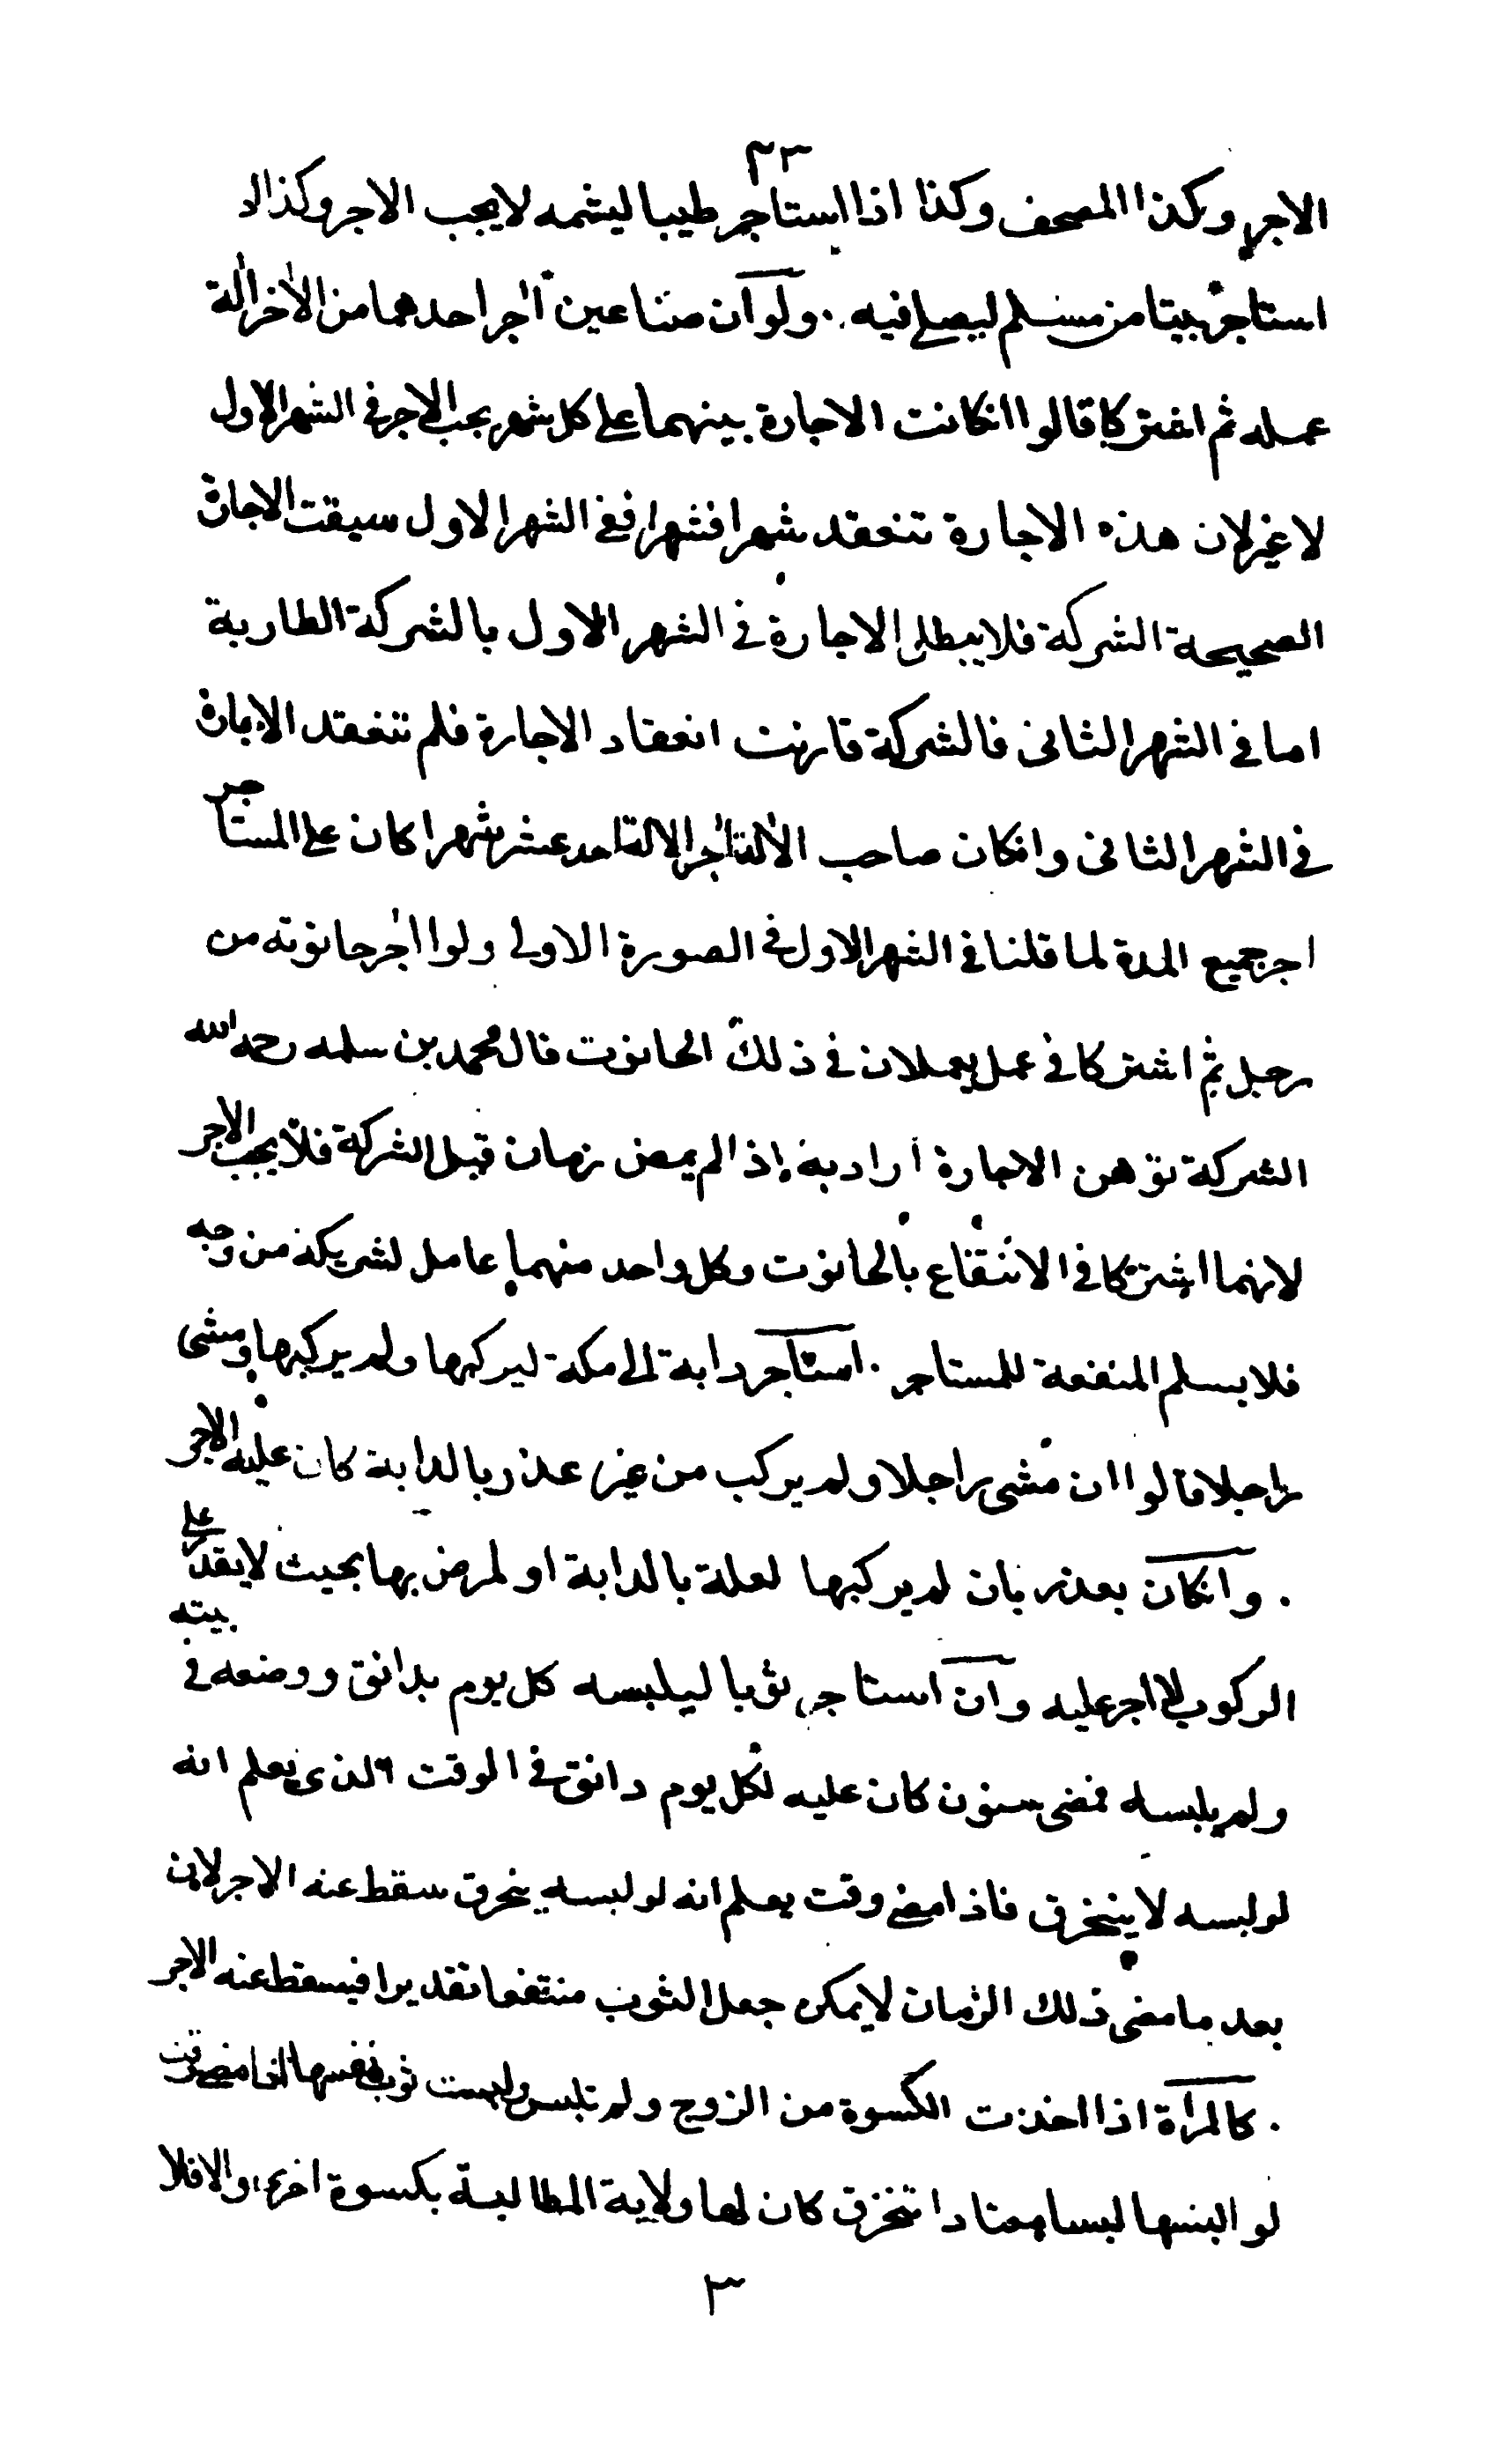 ٢٣
الاجر وكذا المصحف وكذا اذا استاجر طيبا ليشمه لا يجب الاجر وكذا لو
استاجر بيتا من مسلم ليصلى فيه . ولو ان صناعين آجر احدهما من الآخر آلة
عمله ثم اشتركا قالوا انكانت الاجارة بينهما على كل شهر يجب الاجر فى الشهر الاول
لا غير لان هذه الاجارة تنعقد شهرا فشهرا ففى الشهر الاول سبقت الاجارة
الصحيحة الشركة فلا يبطل الاجارة فى الشهر الاول بالشركة الطارية
اما فى الشهر الثانى فالشركة قارنت انعقاد الاجارة فلم تنعقد الاجارة
فى الشهر الثانى وانكان صاحب الآلة آجر الالة احد عشر شهرا كان على المستاجر
اجر جميع المدة لما قلنا فى الشهر الاول فى الصورة الاولى ولو آجر حانوته من
رجل ثم اشتركا فى عمل يعملان فى ذلك الحانوت قال محمد بن سلمه رحمه الله
الشركة توهن الاجارة اراد به اذا لم يمض زمان قبل الشركة فلا يجب الاجر
لانهما اشتركا فى الانتفاع بالحانوت وكل واحد منهما عامل لشريكه من وجه
فلا يسلم المنفعة للمستاجر . استاجر دابة الى مكة ليركبها ولم يركبها ومشى
راجلا قالوا ان مشى راجلا ولم يركب من غير عذر بالدابة كان عليه الاجر
. وانكان بعذر بان لم يركبها لعلة بالدابة او لمرض بها بحيث لا يقدر على
الركوب لا اجر عليه وان استاجر ثوبا ليلبسه كل يوم بدانق ووضعه فى بيته
ولم يلبسه فمضى سنون كان عليه لكل يوم دانق فى الوقت الذى يعلم انه
لو لبسه لا ينخرق فاذا مضى وقت يعلم انه لو لبسه ينخرق سقط عنه الاجر لان
بعد ما مضى ذلك الزمان لا يمكن جعل الثوب منتفعا تقديرا فيسقط عنه الاجر
. كالمراة اذا اخذت الكسوة من الزوج ولم تلبس ولبست ثوب نفسها اذا مضى وقت
لو البسها لبسا معتادا تتخرق كان لها ولاية المطالبة بكسوة اخرى والا فلا
٣